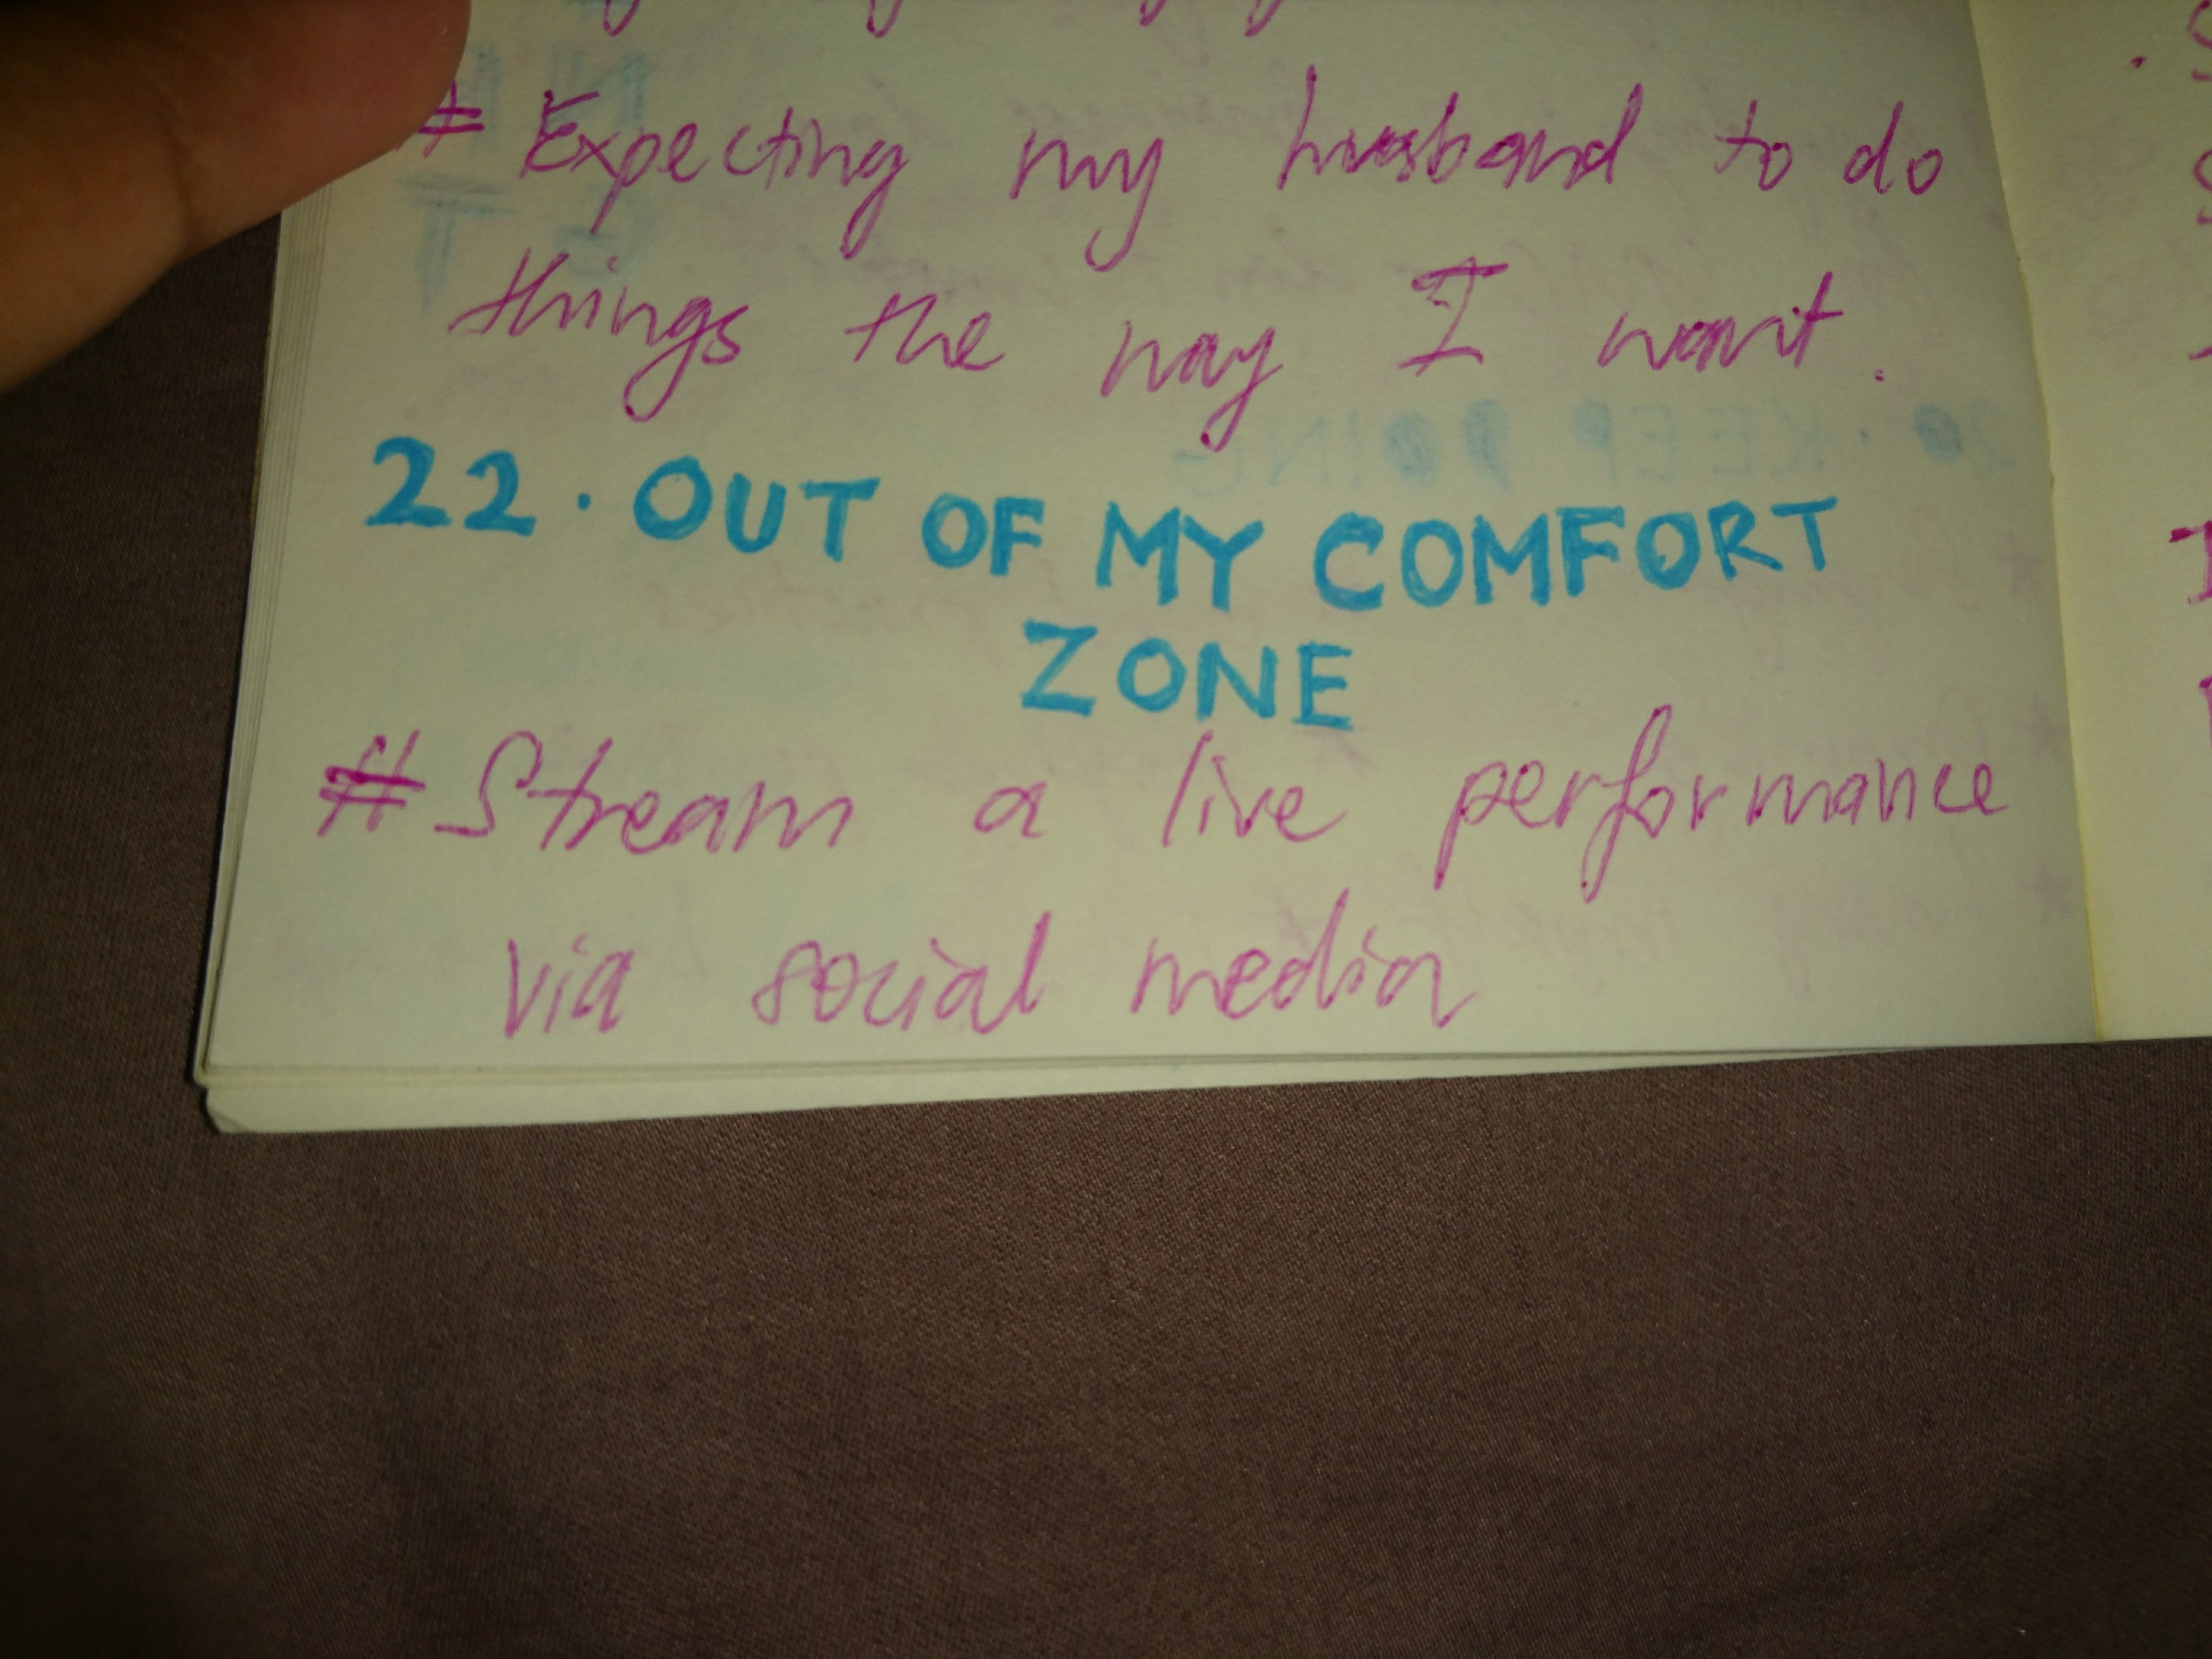 # Expecting my husband to do
things the way I want.
22. OUT OF MY COMFORT
ZONE
# Stream a live performance
via social media